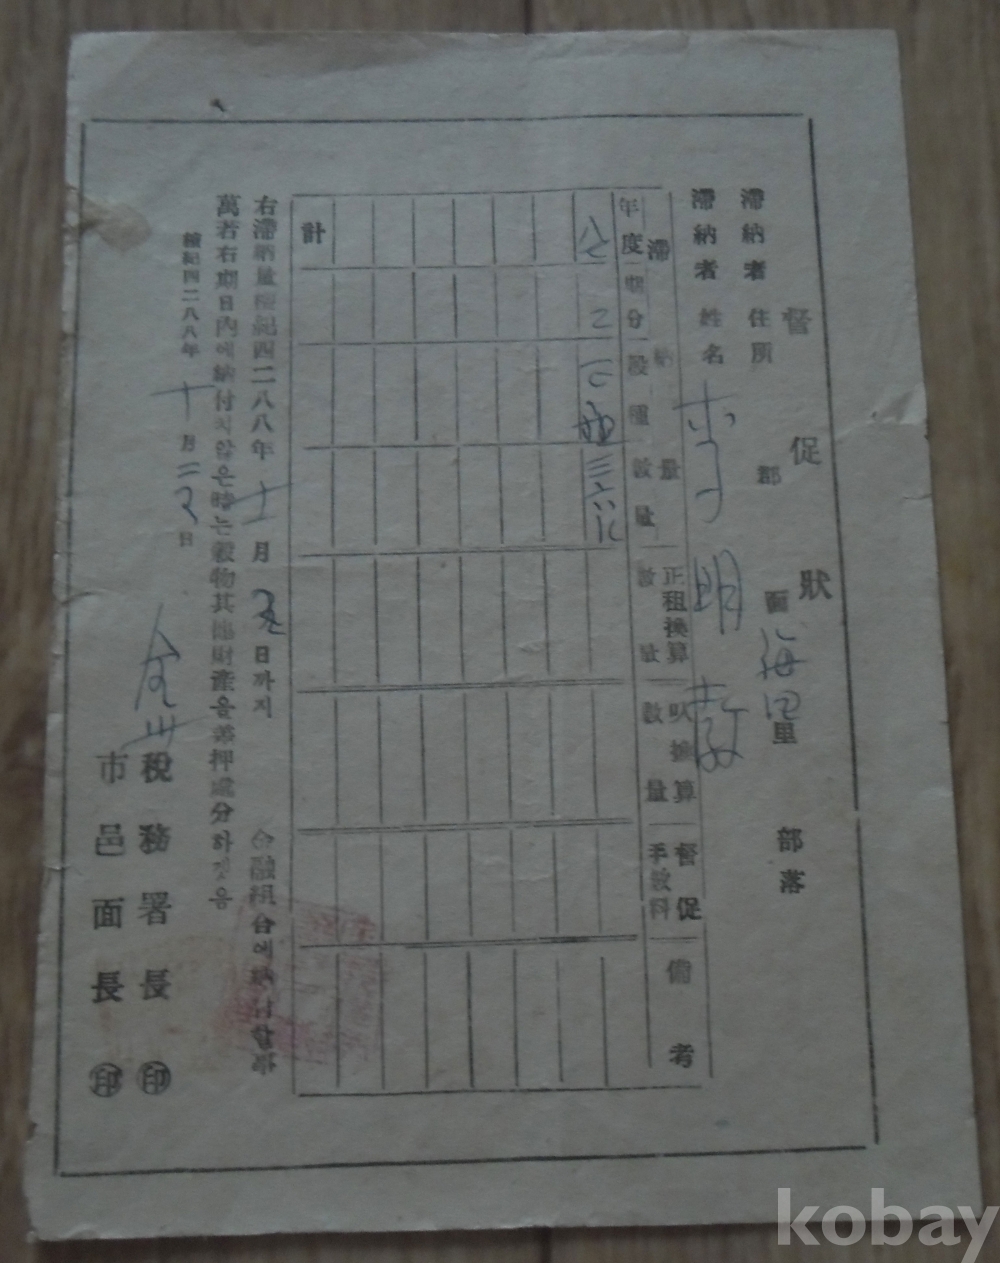 督促狀
滯納者 住所 郡 面 海 里 部落
滯納者 姓名 李 明
滯納量
年度 期分 穀種 數量 正租換算數量 叺換算數量 督促手數料 備考
八七 2 三六
計
右滯納量檀紀四二八八年 十一 月 五 日까지 金融組合에
萬若右期日內에納付치않은時는穀物其他財産을差押處分하겟음
檀紀四二八八年 十 月 二 日
稅務署長 ㊞
市邑面長 ㊞
kobay